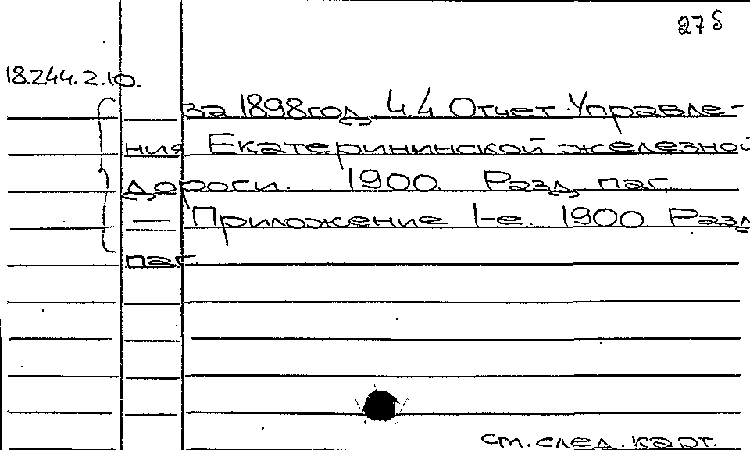 27б
18.244.2.10.
за 1898год Ч.4 Отчет Управле-
ния Екатерининской железной
дороги. 1900. Разд. паг.
— Приложение 1-е. 1900 Разд
паг.
См. след. карт.